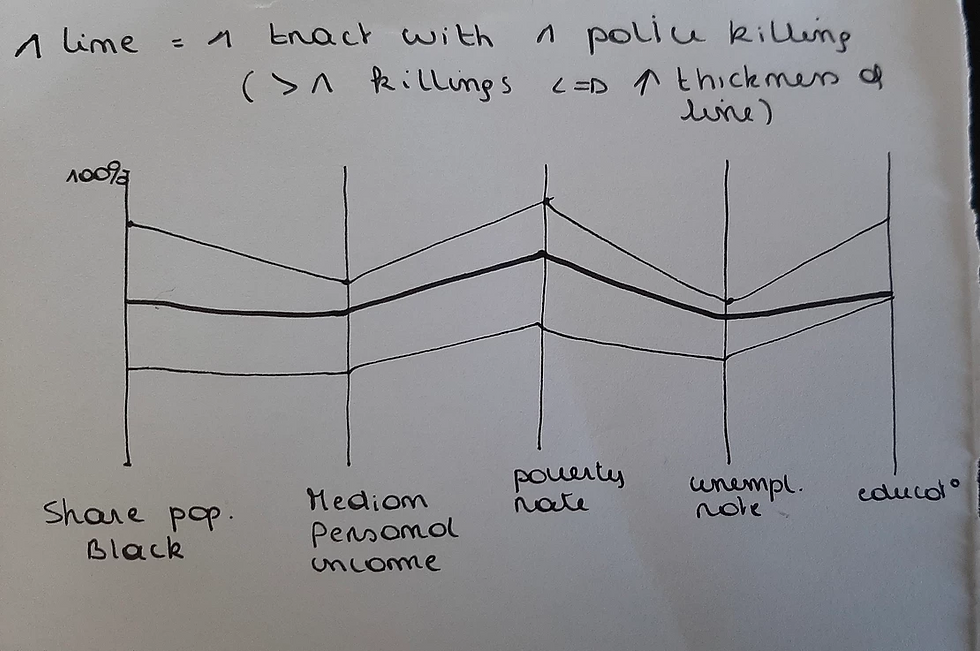 1 line = 1 tract with 1 police killing
(>1 killings <=> ↑ thickness of
line)
100%
Share pop.
Black
Median
Personal
income
poverty
rate
unempl.
rate
educat°